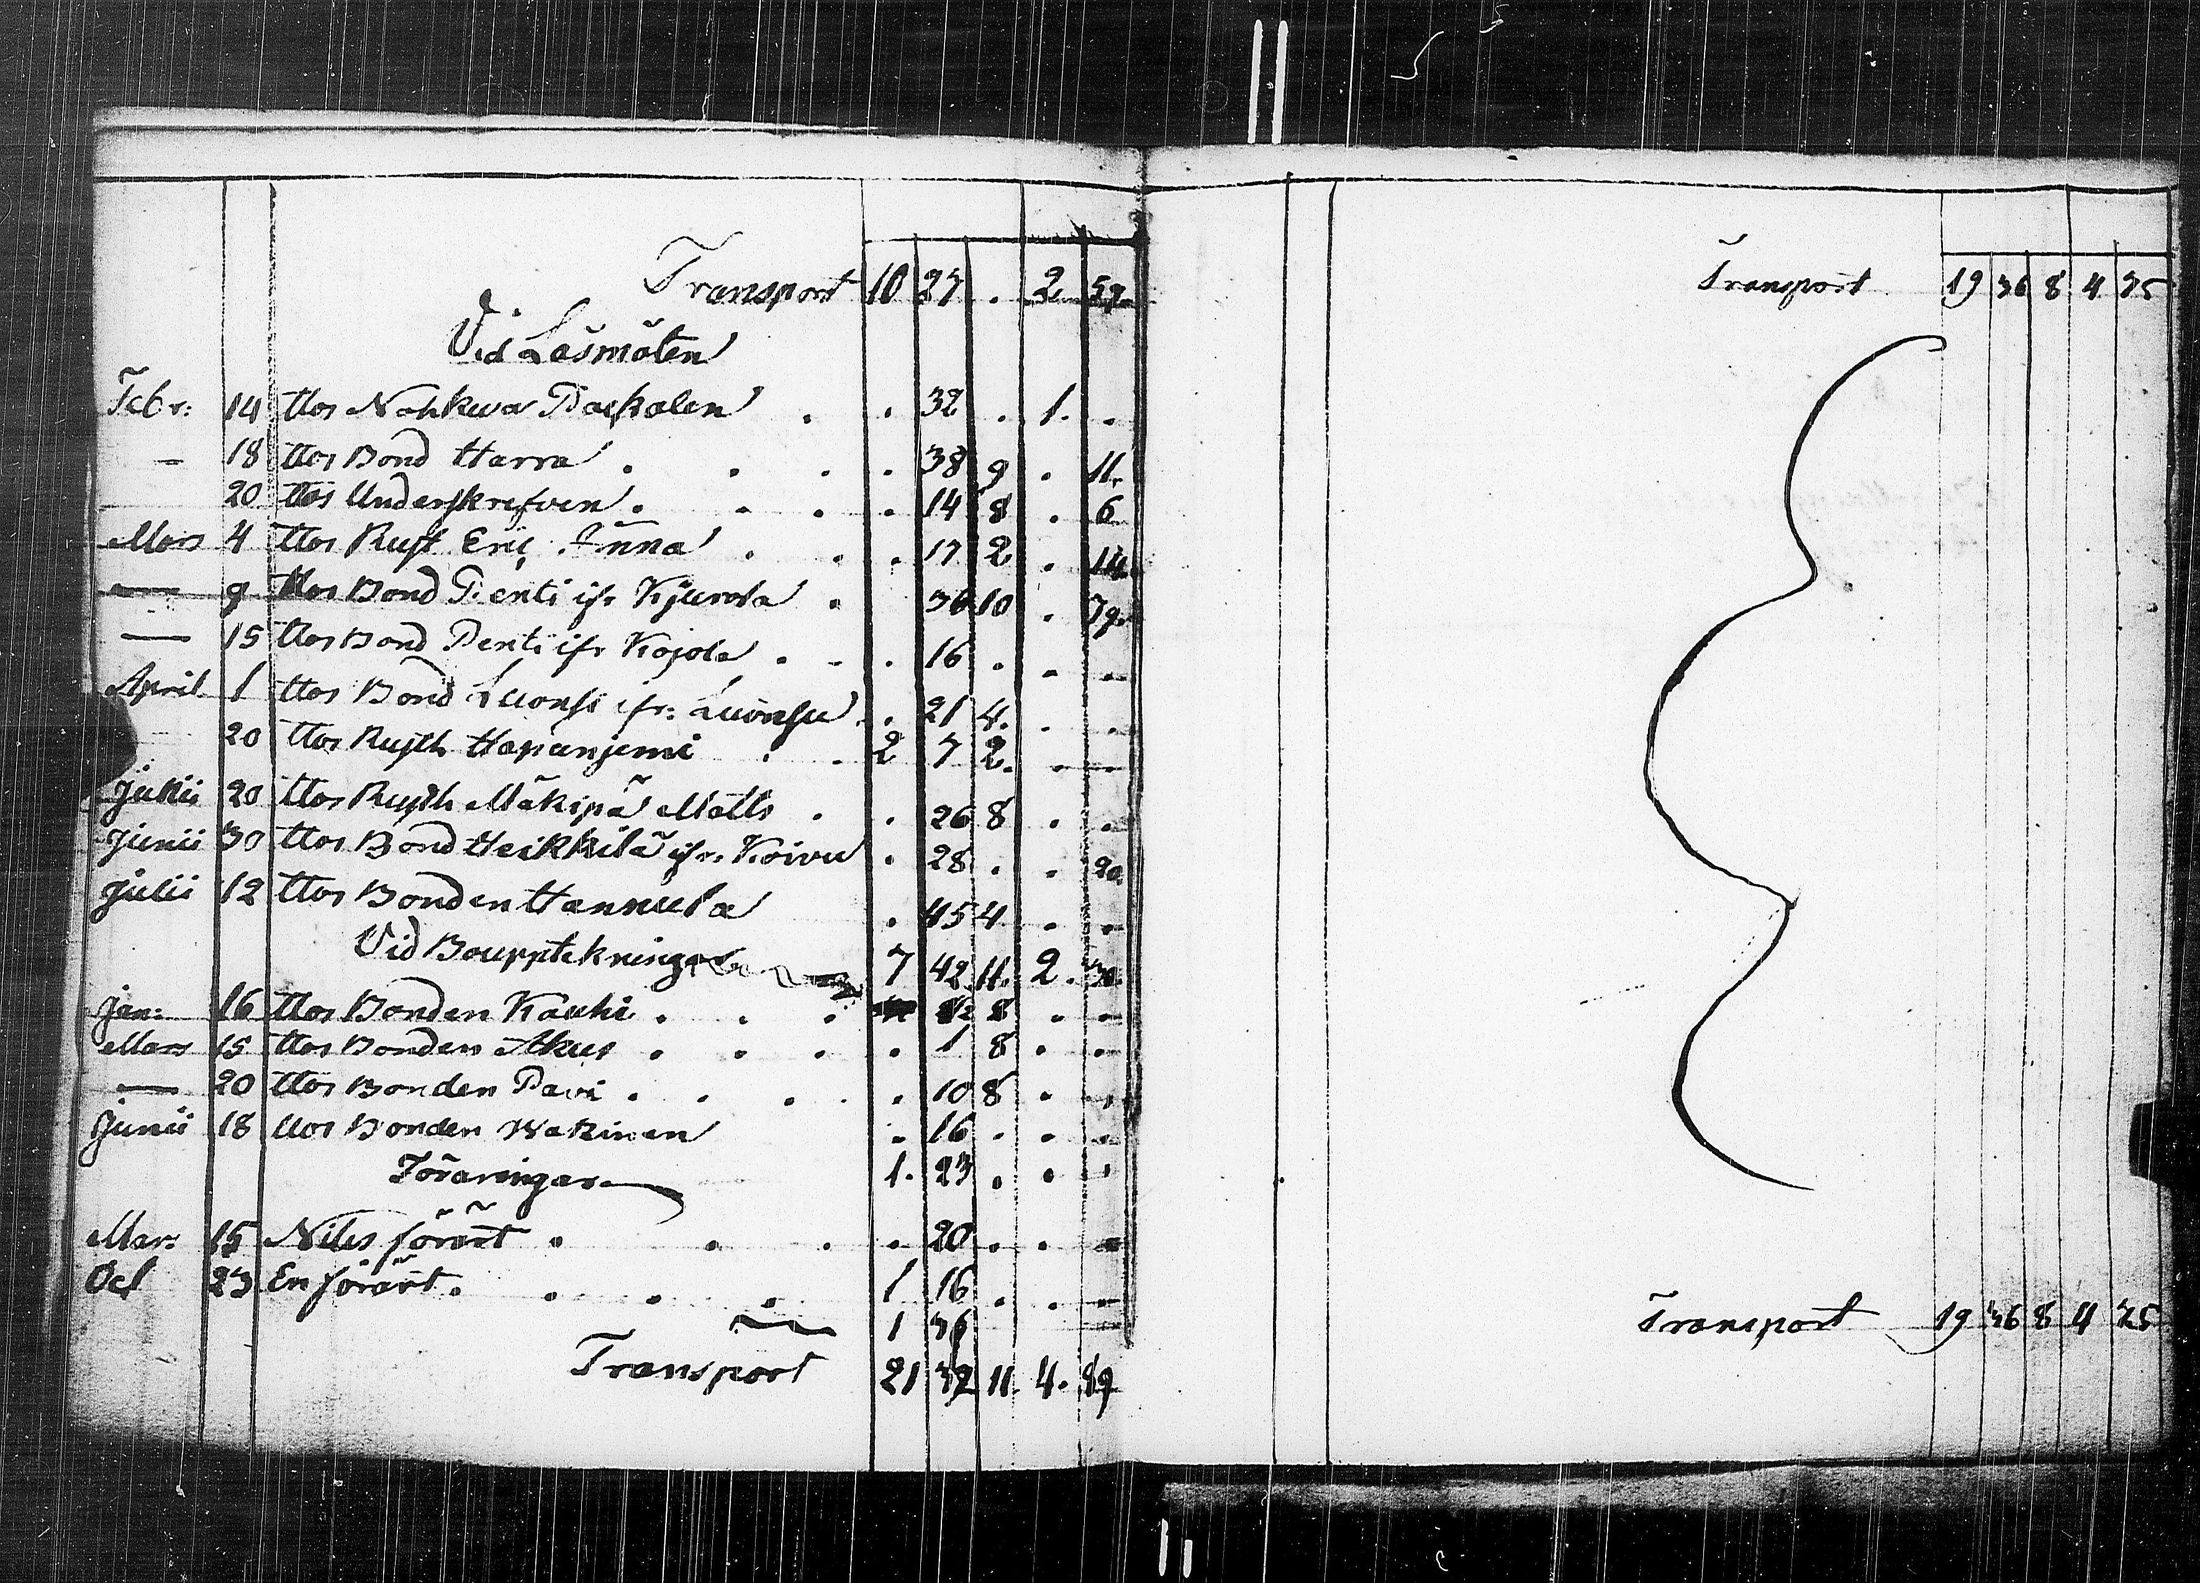 Transport 10 27 . 2 59
Vid Läsmöten
Febr: 14 Hos Nahkwa Packalen . . 32 . 1. .
— 18 Hos Bond Harra . . . . 38 9 . 11.
20 Hos Underskrefven . . . . 14 8 . 6
Mars 4 Hos Rust Eric Anna . . . 17 2 . 14
— 9 Hos Bond Penti ifr Kjurola . 36 10 . 39.
— 15 Hos Bond Penti ifr Kojola . . . 16 . . .
April 1 Hos Bond Luonsi ifr: Luonsu . 21 4. . .
20 Hos Rusth Hapaniemi . . 2 7 2. . .
20 Hos Rusth Mäkipä Matts . . 26 8 . .
Junii 30 Hos Bond Heikkilä ifr. Koivu . 28 . . 20.
Julii 12 Hos Bonden Hannula . 45 4 . .
Vid Boupptekningar 7 42 11. 2. 30.
Jan: 16 Hos Bonden Kauhi . . . 8 . .
Mars 15 Hos Bonden Akus . . . . 1 8 . .
— 20 Hos Bonden Pavi . . . . 10 8 . .
Junii 18 Hos Bonden Wakinen . 16 . . .
Föraringar 1. 23 . . .
Mar: 15 Niles förärt . . . . 20 . . .
Oct 23 En förärt . . . . 1 16 . . .
1 36
Transport 21 32 11. 4. 89
Transport 19 36 8 4 35
Transport 19 36 8 4 35